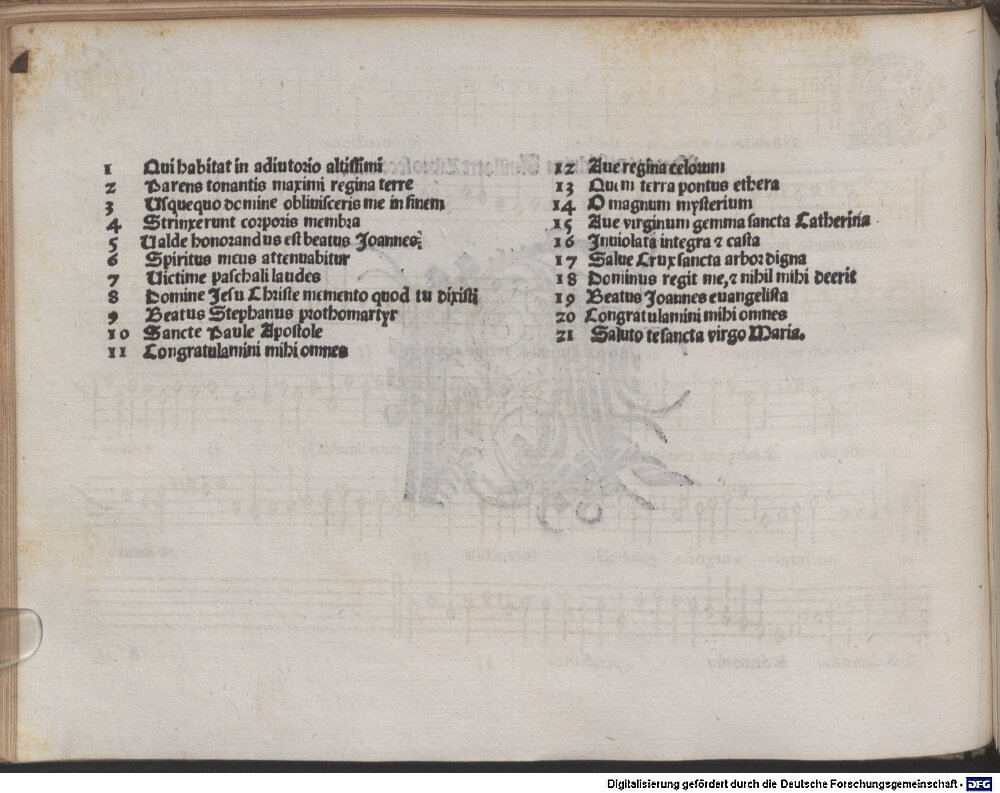 1 Qui habitat in adiutorio altissimi
2 Parens tonantis maximi regina terre
3 Usquequo domine obliuisceris me in finem
4 Strinxerunt corporis membra
5 Ualde honorandus est beatus Joannes
6 Spiritus meus attenuabitur
7 Uictime paschali laudes
8 Domine Jesu Christe memento quod tu dixisti
9 Beatus Stephanus prothomartyr
10 Sancte Paule Apostole
11 Congratulamini mihi omnes
12 Aue regina celorum
13 Quem terra pontus ethera
14 O magnum mysterium
15 Aue virginum gemma sancta Catherina
16 Inuiolata integra ⁊ casta
17 Salue Crux sancta arbor digna
18 Dominus regit me, ⁊ nihil mihi deerit
19 Beatus Joannes euangelista
20 Congratulamini mihi omnes
21 Saluto te sancta virgo Maria.
Digitalisierung gefördert durch die Deutsche Forschungsgemeinschaft - DFG